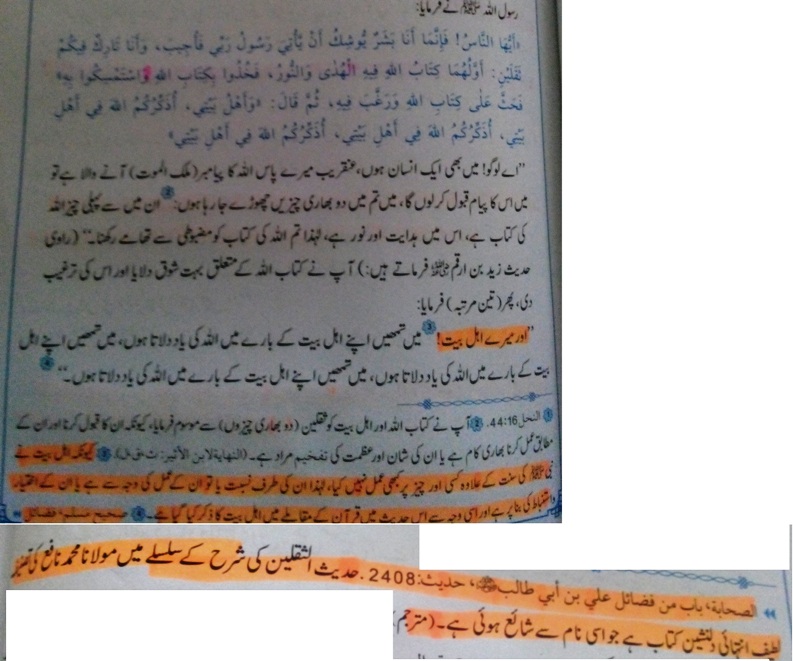 رسول اللہ ﷺ نے فرمایا:
«أَيُّهَا النَّاسُ! فَإِنَّمَا أَنَا بَشَرٌ يُوشِكُ أَنْ يَأْتِيَ رَسُولُ رَبِّي فَأُجِيبَ، وَأَنَا تَارِكٌ فِيكُمْ
ثَقَلَيْنِ: أَوَّلُهُمَا كِتَابُ اللهِ فِيهِ الْهُدَى وَالنُّورُ، فَخُذُوا بِكِتَابِ اللهِ وَاسْتَمْسِكُوا بِهِ»
فَحَثَّ عَلَى كِتَابِ اللهِ وَرَغَّبَ فِيهِ، ثُمَّ قَالَ: «وَأَهْلُ بَيْتِي، أُذَكِّرُكُمُ اللهَ فِي أَهْلِ
بَيْتِي، أُذَكِّرُكُمُ اللهَ فِي أَهْلِ بَيْتِي، أُذَكِّرُكُمُ اللهَ فِي أَهْلِ بَيْتِي»
”اے لوگو! میں بھی ایک انسان ہوں، عنقریب میرے پاس اللہ کا پیامبر (ملک الموت) آنے والا ہے تو
میں اس کا پیام قبول کرلوں گا، میں تم میں دو بھاری چیزیں چھوڑے جا رہا ہوں: ② ان میں سے پہلی چیز اللہ
کی کتاب ہے، اس میں ہدایت اور نور ہے، لہٰذا تم اللہ کی کتاب کو مضبوطی سے تھامے رکھنا۔“ (راوی
حدیث زید بن ارقم رضی اللہ عنہ فرماتے ہیں:) آپ نے کتاب اللہ کے متعلق بہت شوق دلایا اور اس کی ترغیب
دی، پھر (تین مرتبہ) فرمایا:
”اور میرے اہل بیت! ③ میں تمھیں اپنے اہل بیت کے بارے میں اللہ کی یاد دلاتا ہوں، میں تمھیں اپنے اہل
بیت کے بارے میں اللہ کی یاد دلاتا ہوں، میں تمھیں اپنے اہل بیت کے بارے میں اللہ کی یاد دلاتا ہوں۔“ ④
① النحل 44:16. ② آپ نے کتاب اللہ اور اہل بیت کو ثقلین (دو بھاری چیزوں) سے موسوم فرمایا، کیونکہ ان کا قبول کرنا اور ان کے
مطابق عمل کرنا بھاری کام ہے یا ان کی شان اور عظمت کی تفخیم مراد ہے۔ (النهاية لابن الأثير: ث،ق،ل). ③ کیونکہ اہل بیت نے
نبی ﷺ کی سنت کے علاوہ کسی اور چیز پر کبھی عمل نہیں کیا، لہٰذا ان کی طرف نسبت یا تو ان کے عمل کی وجہ سے ہے یا ان کے اختیار
واستنباط کی بنا پر ہے اور اسی وجہ سے اس حدیث میں قرآن کے مقابلے میں اہل بیت کا ذکر کیا گیا ہے۔ ④ صحيح مسلم، فضائل
الصحابة، باب من فضائل علي بن أبي طالب رضی اللہ عنہ، حديث: 2408. حدیث الثقلین کی شرح کے سلسلے میں مولانا محمد نافع کی
لطیف انتہائی دلنشین کتاب ہے جو اسی نام سے شائع ہوئی ہے۔ (مترجم)